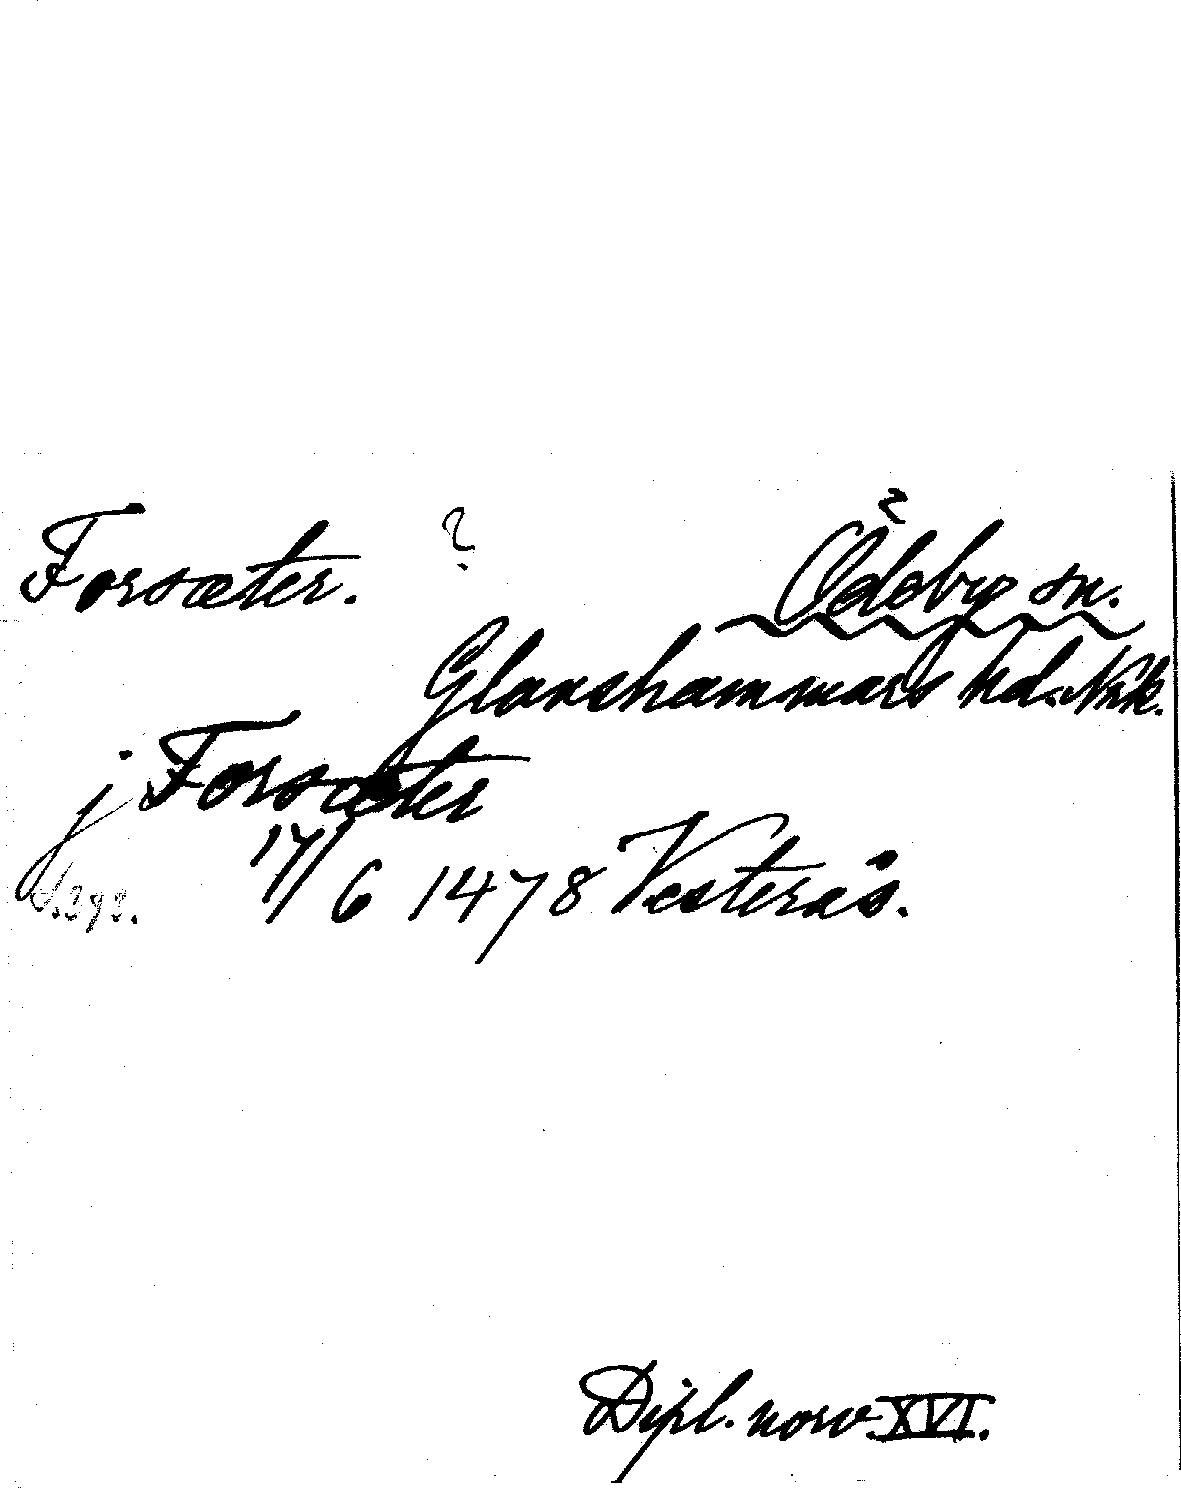 Forsæter. ? Ödeby sn.
Glanshammars hd. Nrk.
j Forsæter
s. 393. 17/6 1478 Vesterås.
Dipl. norv. XVI.